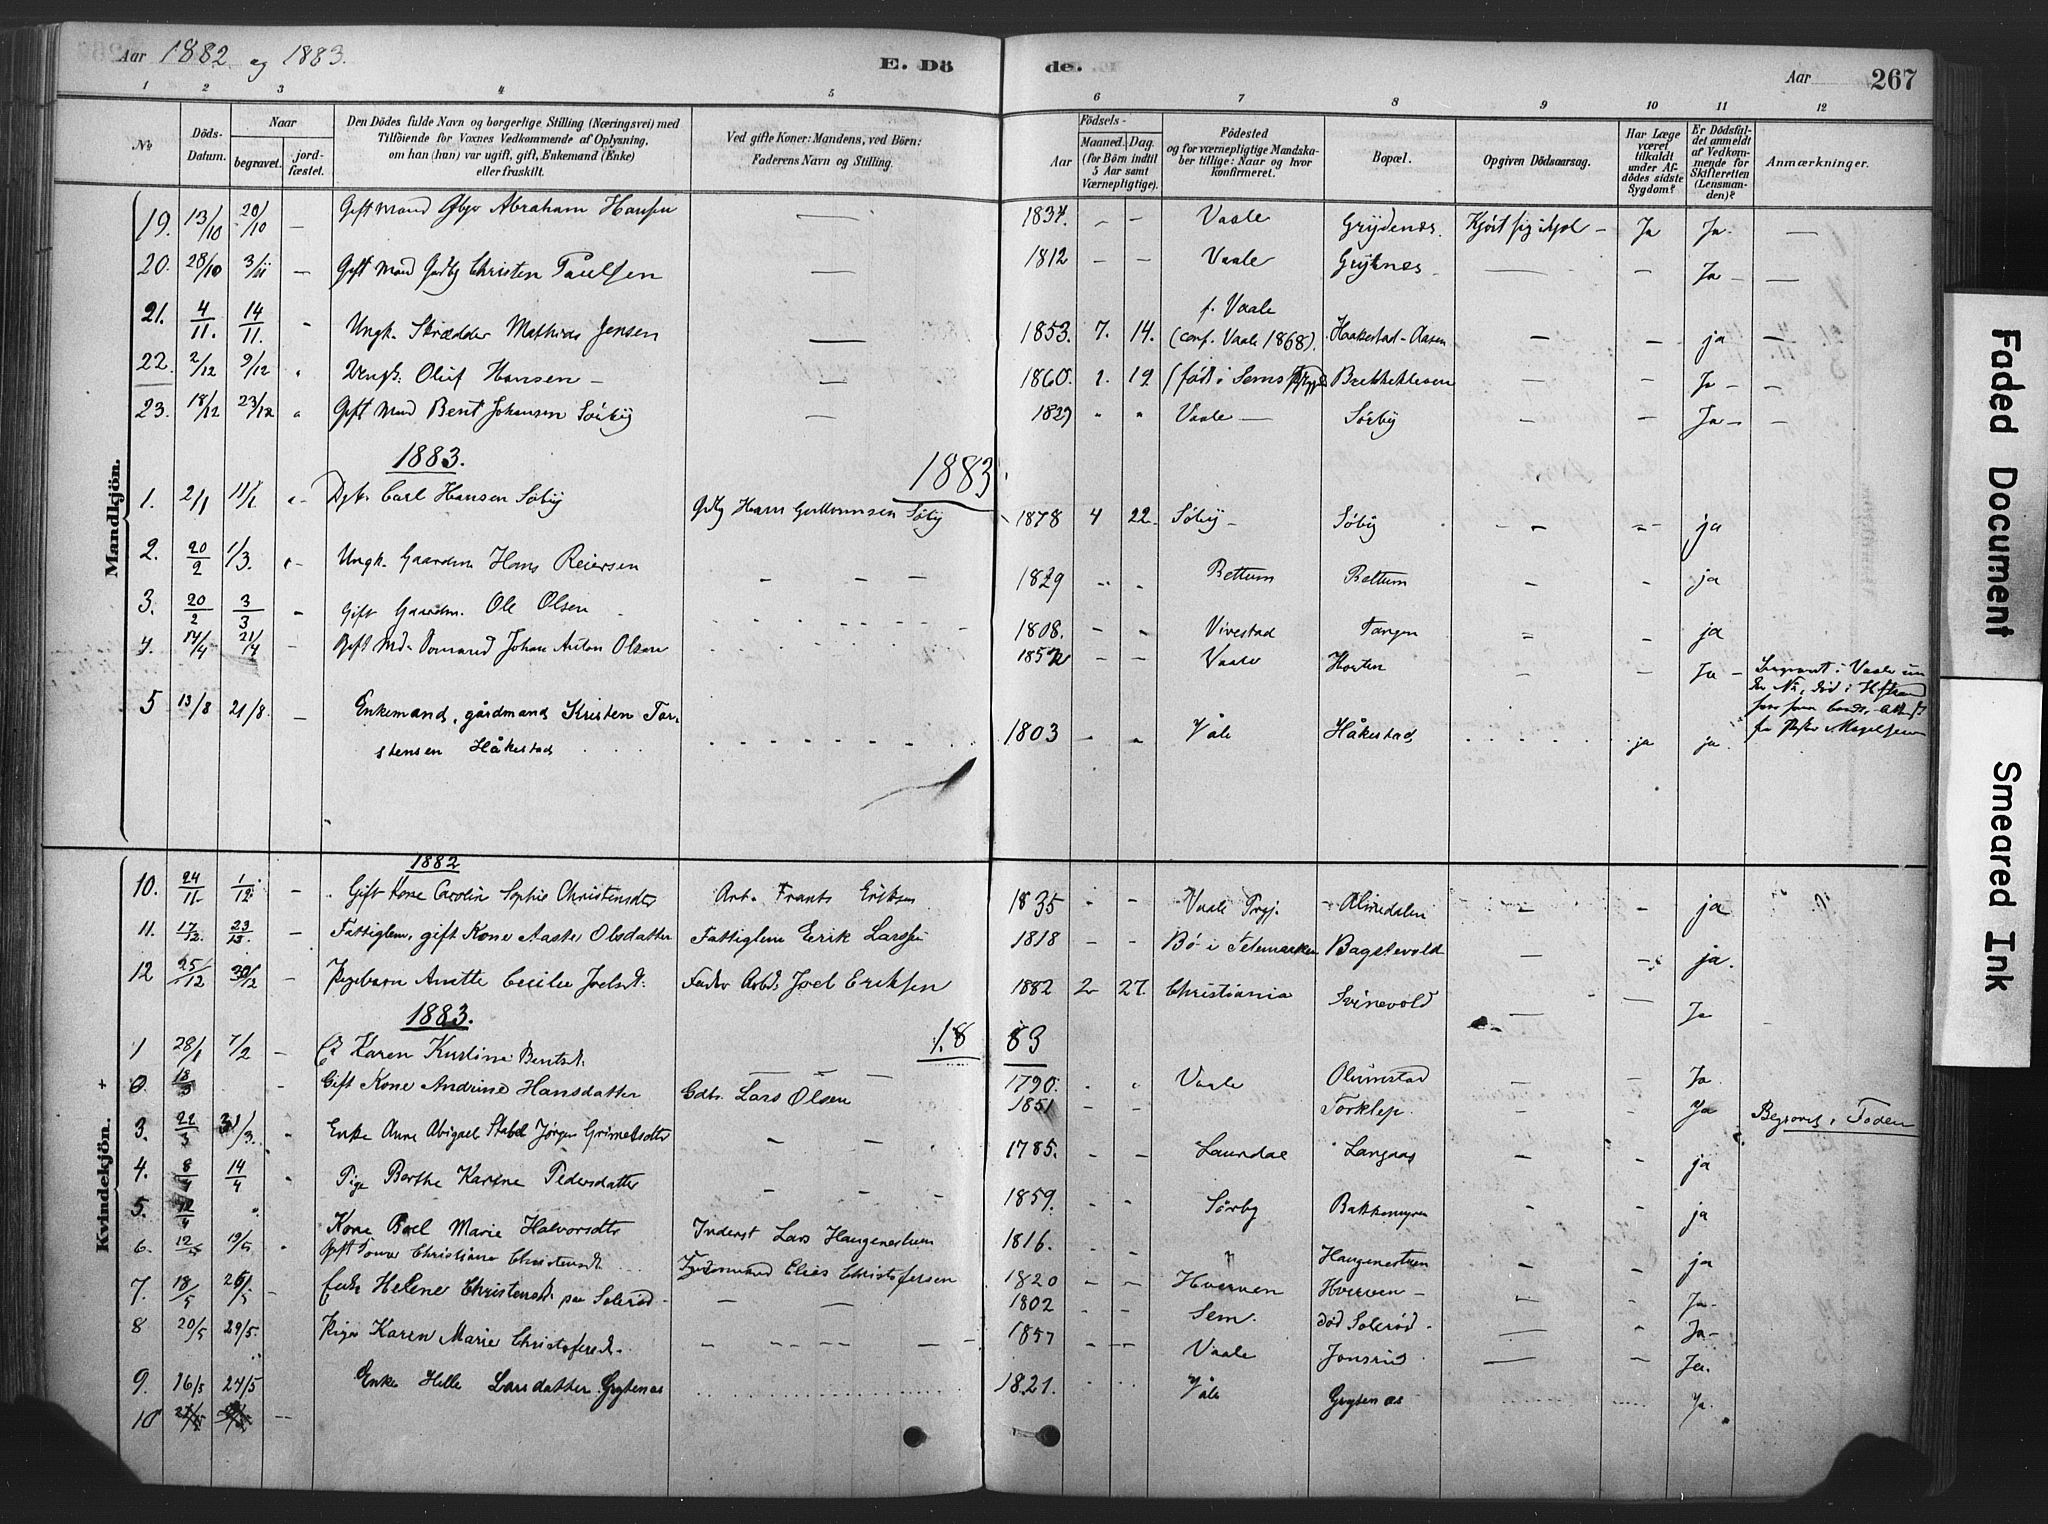 Aar 1882 og 1883.
E. Dö
de.
Aar
267
1 2 3 4 5 6 7 8 9 10 11 12
№
Döds-
Datum.
Naar
begravet.
jord-
fæstet.
Den Dödes fulde Navn og borgerlige Stilling (Næringsvei) med
Tilföiende for Voxnes Vedkommende af Oplysning,
om han (hun) var ugift, gift, Enkemand (Enke)
eller fraskilt.
Ved gifte Koner: Mandens, ved Börn:
Faderens Navn og Stilling.
Födsels-
Aar
Maaned. Dag.
(for Börn indtil
5 Aar samt
Værnepligtige).
Födested
og for værnepligtige Mandska-
ber tillige: Naar og hvor
konfirmeret.
Bopæl.
Opgiven Dödsaarsag.
Har Læge
været
tilkaldt
under Af-
dödes sidste
Sygdom?
Er Dödsfal-
det anmeldt
af Vedkom-
mende for
Skifteretten
(Lensman-
den)?
Anmærkninger.
Mandkjön.
19. 13/10 20/10 — Gift Mand Abraham Hansen — 1834. - - Vaale Grydenes. Ja Ja- —
20. 28/10 3/11 — Gift Mand Christen Paulsen — 1812 - - Vaale Grytnes - — - Ja - —
21. 4/11. 14/11. - Ungk. Skrædder Mathias Jensen — 1853. 7. 14. f. Vaale
(conf. Vaale 1868). Haakestad-Aasen - - ja -
22. 2/12 9/12 Ungk. Oluf Hansen - — 1860. 1. 19 (født i Sems Brekkekleven - - Ja - -
23. 18/12 23/12 Gift Mand Bent Johansen Sörby — 1829 " " Vaale — Sörby - - Ja - -
1883.
1883
1. 2/1 11/1 Carl Hansen Søby Hans Søby 1878 4 22 Søby - Søby - - ja
2. 20/2 1/3. Ungk. Gaardm Hans Reiersen - - - 1829 - - Rettum Rettum - - ja
3. 20/2 3/3 - Gift Gaardm. Ole Olsen 1808. - - Vivestad Tangen - ja
4. 14/4 21/4 - Gift Md. Johan Anton Olsen 1852 - - Vaale Horten - - Ja -
5 13/8 21/8. — Enkemand, gårdmand Kristen Tor-
stensen Håkestad 1803 - - Våle Håkestad ja ja.
Kvindekjön.
1882
10. 24/11. 1/12 - Gift Kone Carolin Sophie Christensdtr Arb. Frants Eriksen 1835 - - Vaale Prgj. Almedalen - - ja
11. 17/12. 23/12. - Fattiglem, gift Kone Aaste Olsdatter Fattiglem Erik Larsen 1818 - - Bø i Telemarken Bagstevold - ja.
12 25/12 30/12 - Pigebarn Anette Cecilie Joelsdt. Fader Arbd. Joel Eriksen 1882 2 27. Christiania Svinevold — Ja -
1883.
1883
1 28/1 7/2 - Karen Kirstine Bentsdt. 1790. Vaale Olimstad - - Ja
18/3 Gift Kone Andrine Hansdatter Gdbr. Lars Olsen 1851 - - Torklep. - - Ja Begravet i Foden
3. 22/3 31/3. Enke Anne Abigael Stabel Jørgen Grimelsdtr - - 1785. - - Laurdal Langaas - - ja
4. 8/4 14/4 Pige Berthe Karine Pedersdatter - - - 1859. - - Sørby Bakkemyra - - ja
5. 12/4 Kone Boel Marie Halvorsdtr Inderst Lars Haugenestuen 1816. - - " Haugenestuen - - ja
6. 12/5 19/5 Gift Kone Christiane Christensdt. Elias Christofersen 1820 - - Hverven Hverven - - - Ja-
7. 18/5 26/5 - Enke Helene Christensdt. paa Solerød - — — 1802 - - Sem. død Solerød. — - Ja-
8 20/5 29/5. Pige Karen Marie Christofersdt. - 1857 - - Vaale Jonsrud — - Ja.
9. 16/5 24/5 Enke Helle Larsdatter Grytenæs 1821. Våle Grytenæs Ja.
10
Faded Document
Smeared Ink